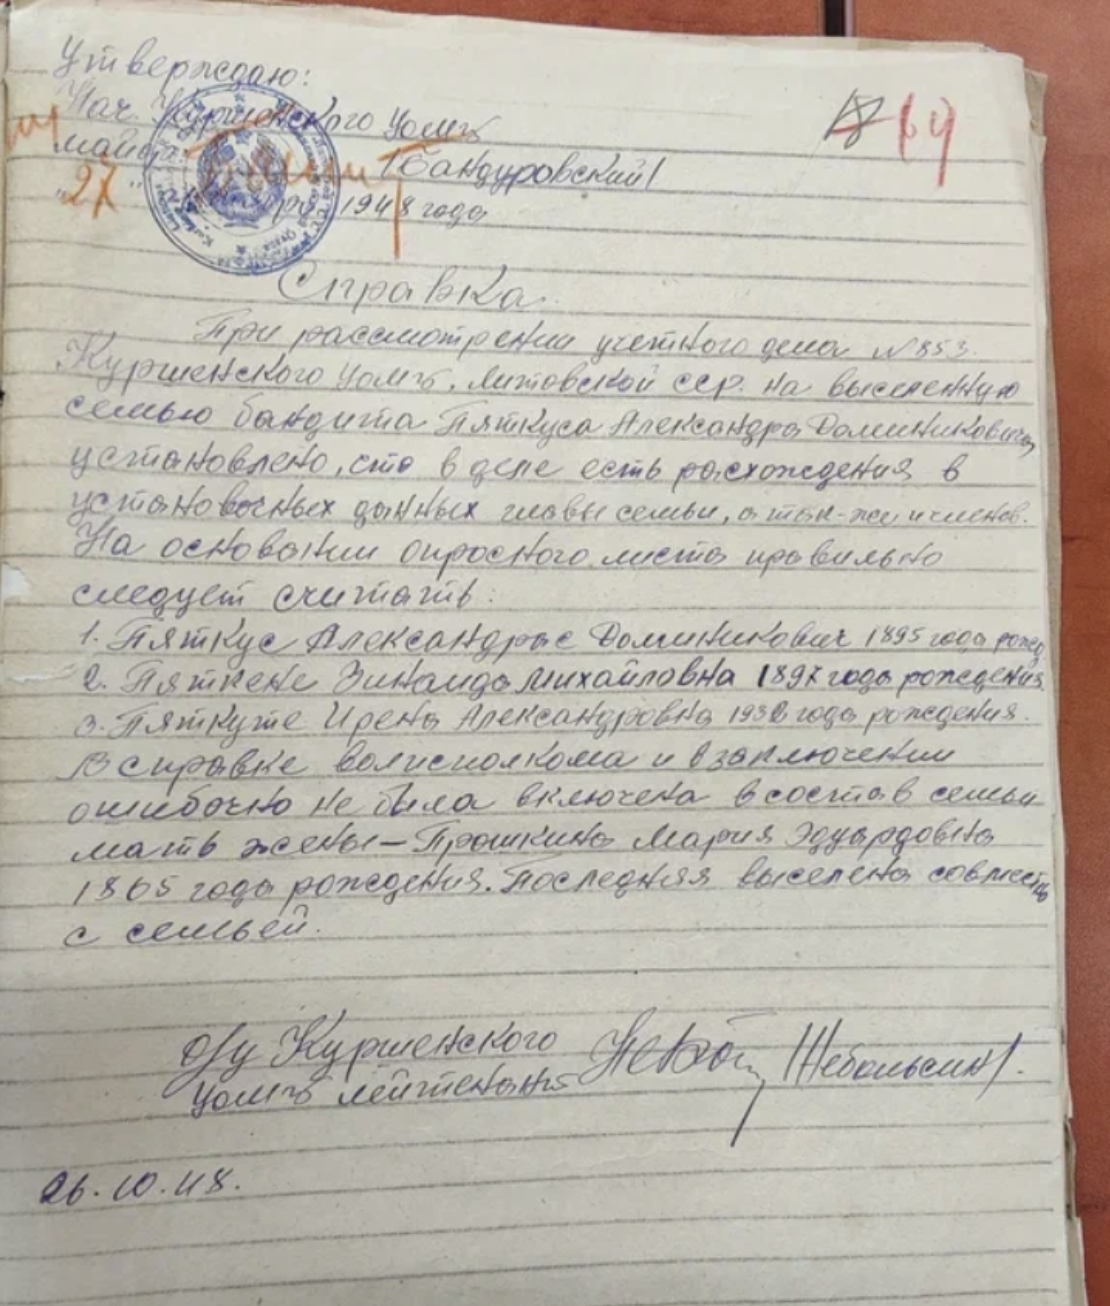 Утверждаю:
Нач. Куршенского УОМГБ
69
майор /Бандуровский/
"27" 1948 года
Справка.
При рассмотрении учетного дела №853.
Куршенского УОМГБ, Литовской ССР. на выселенную
семью бандита Пяткуса Александра Доминиковича,
установлено, что в деле есть расхождения в
установочных данных главы семьи, а так-же и членов.
На основании опросного листа правильно
следует считать:
1. Пяткус Александрас Доминикович 1895 года рожд
2. Пяткене Зинаида Михайловна 1897 года рождения
3. Пяткуте Ирена Александровна 1932 года рождения.
В справке волисполкома и в заключении
ошибочно не была включена в состав семьи
мать жены – Прошкина Мария Эдуардовна
1865 года рождения. Последняя выселена совместно
с семьей.
О/у Куршенского
УОМГБ лейтенант /Жебольсин/.
26.10.48.